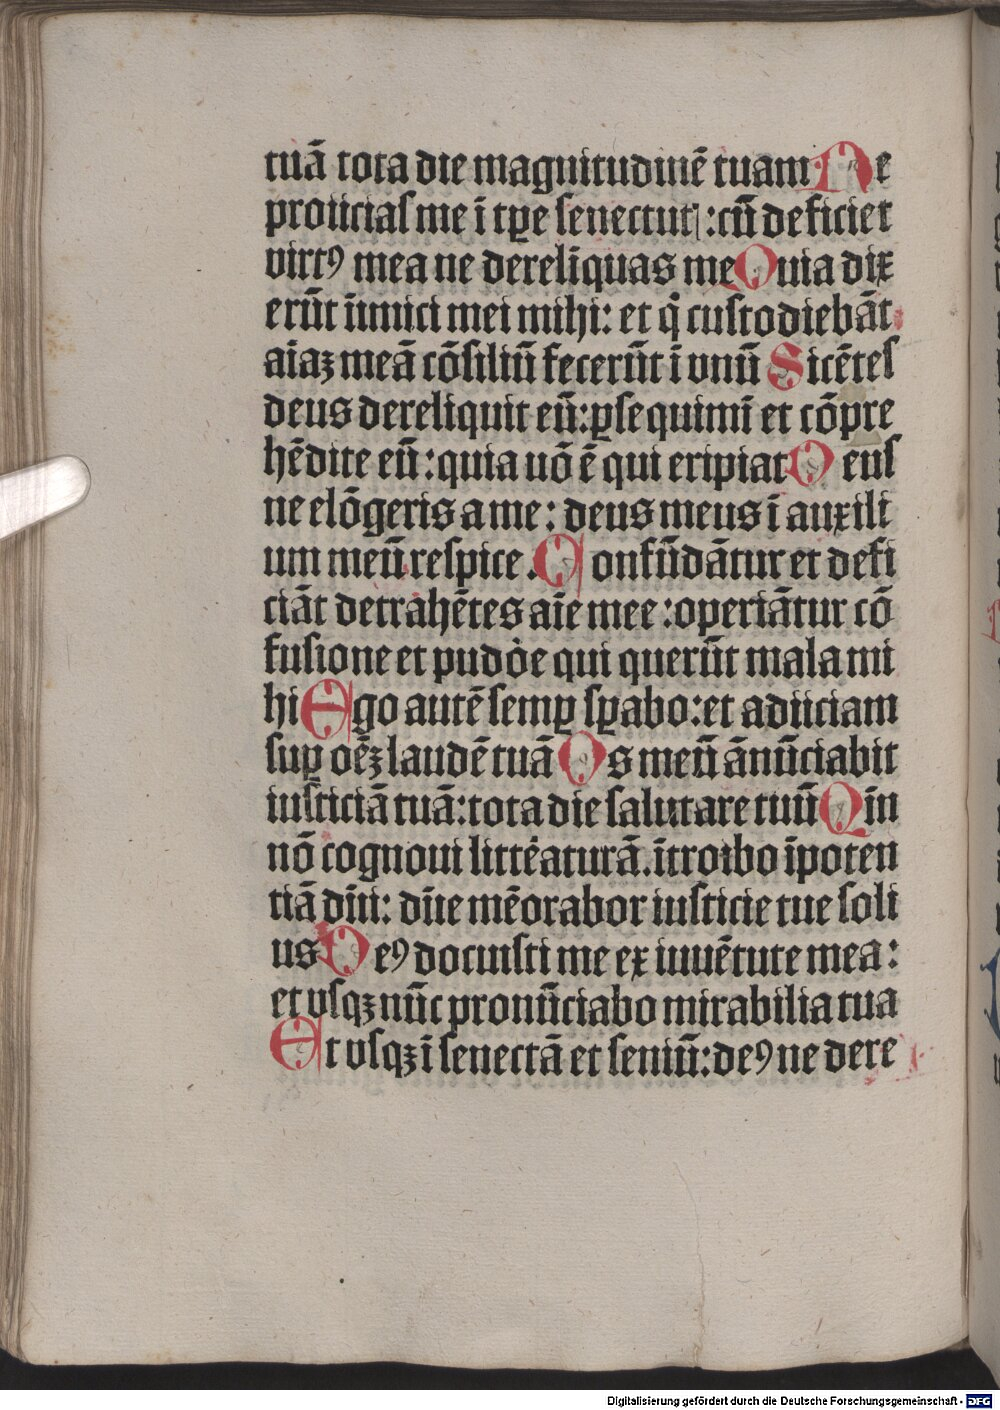 tuā tota die magnitudinē tuam Ne
proiicias me ī tp̱e senectutꝭ :cū deficiet
virtꝰ mea ne derelīquas me Quia dix
erūt īimici mei mihi: et q̇ custodiebāt
aīaꝫ meā cōsiliū fecerūt ī vnū Dicētes
deus dereliquit eū: ꝑsequimī et cōpre
hēdite eū : quia nō ē qui eripiat Deus
ne elōgeris a me : deus meus ī auxili
um meū respice . Confūdātur et defi
ciāt detrahētes aīe mee : operiātur cō
fusione et pudōe qui querūt mala mi
hi Ego autē semꝑ sꝑabo: et adiiciam
suꝑ oēꝫ laudē tuā Os meū ānūciabit
iusticiā tuā: tota die salutare tuū Qm̄
nō cognoui littēaturā. ītroibo īpoten
tiā dn̄i: dn̄e mēorabor iusticie tue soli
us Deꝰ docuisti me ex iuuētute mea :
et vsqꝫ nūc pronūciabo mirabilia tua
Et vsqꝫ ī senectā et seniū: deꝰ ne dere
Digitalisierung gefördert durch die Deutsche Forschungsgemeinschaft - DFG